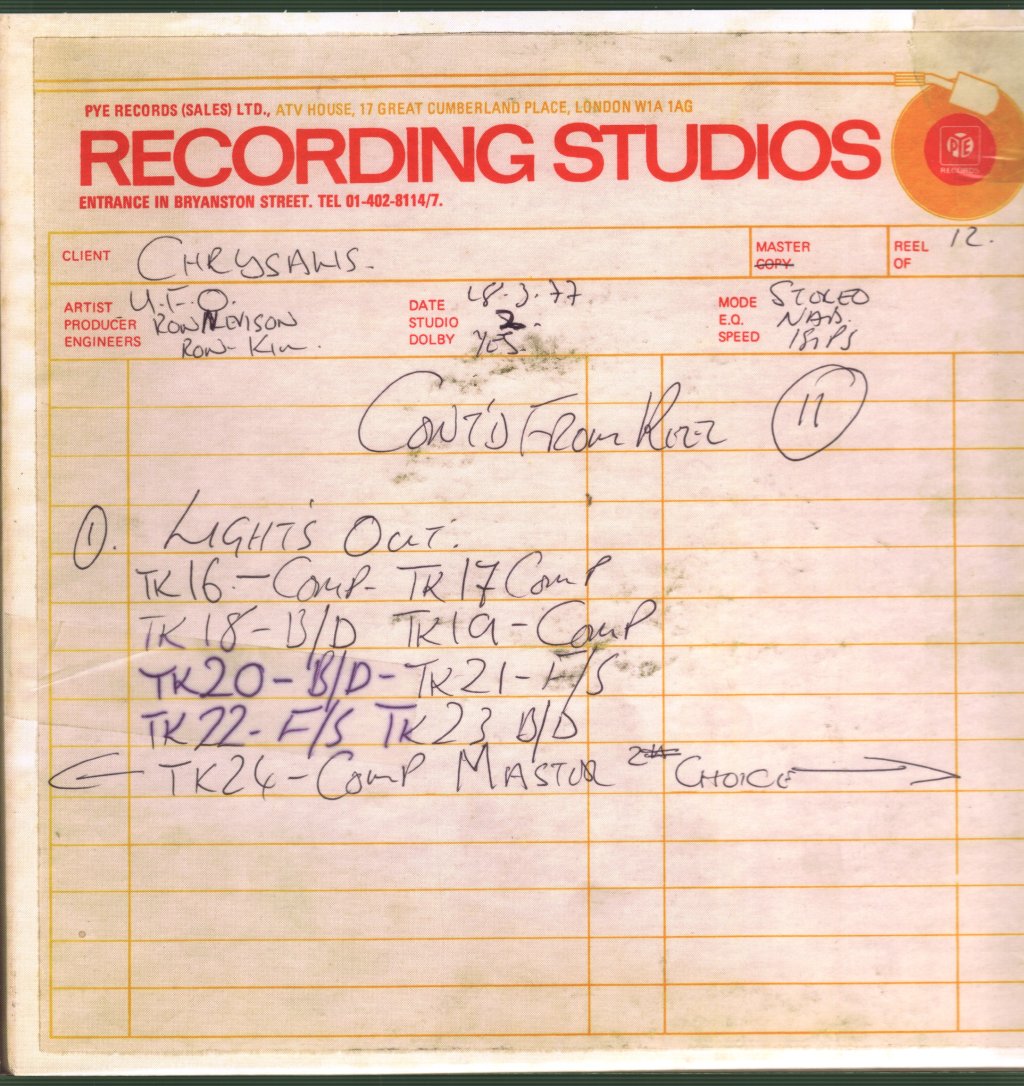 PYE RECORDS (SALES) LTD., ATV HOUSE, 17 GREAT CUMBERLAND PLACE, LONDON W1A 1AG
RECORDING STUDIOS
ENTRANCE IN BRYANSTON STREET. TEL 01-402-8114/7.
PYE
RECORDS
CLIENT CHRYSALIS.
MASTER
COPY
REEL 12.
OF
ARTIST U.F.O.
PRODUCER RON NEVISON
ENGINEERS RON
DATE 18.3.77
STUDIO 2.
DOLBY YES.
MODE STEREO
E.Q. NAB.
SPEED 15IPS
CONT'D FROM REEL 11
1. LIGHT'S OUT.
TK16-COMP- TK17 COMP
TK18-B/D TK19-COMP
TK20-B/D- TK21-F/S
TK22-F/S TK23 B/D
TK24-COMP MASTER 2ND CHOICE